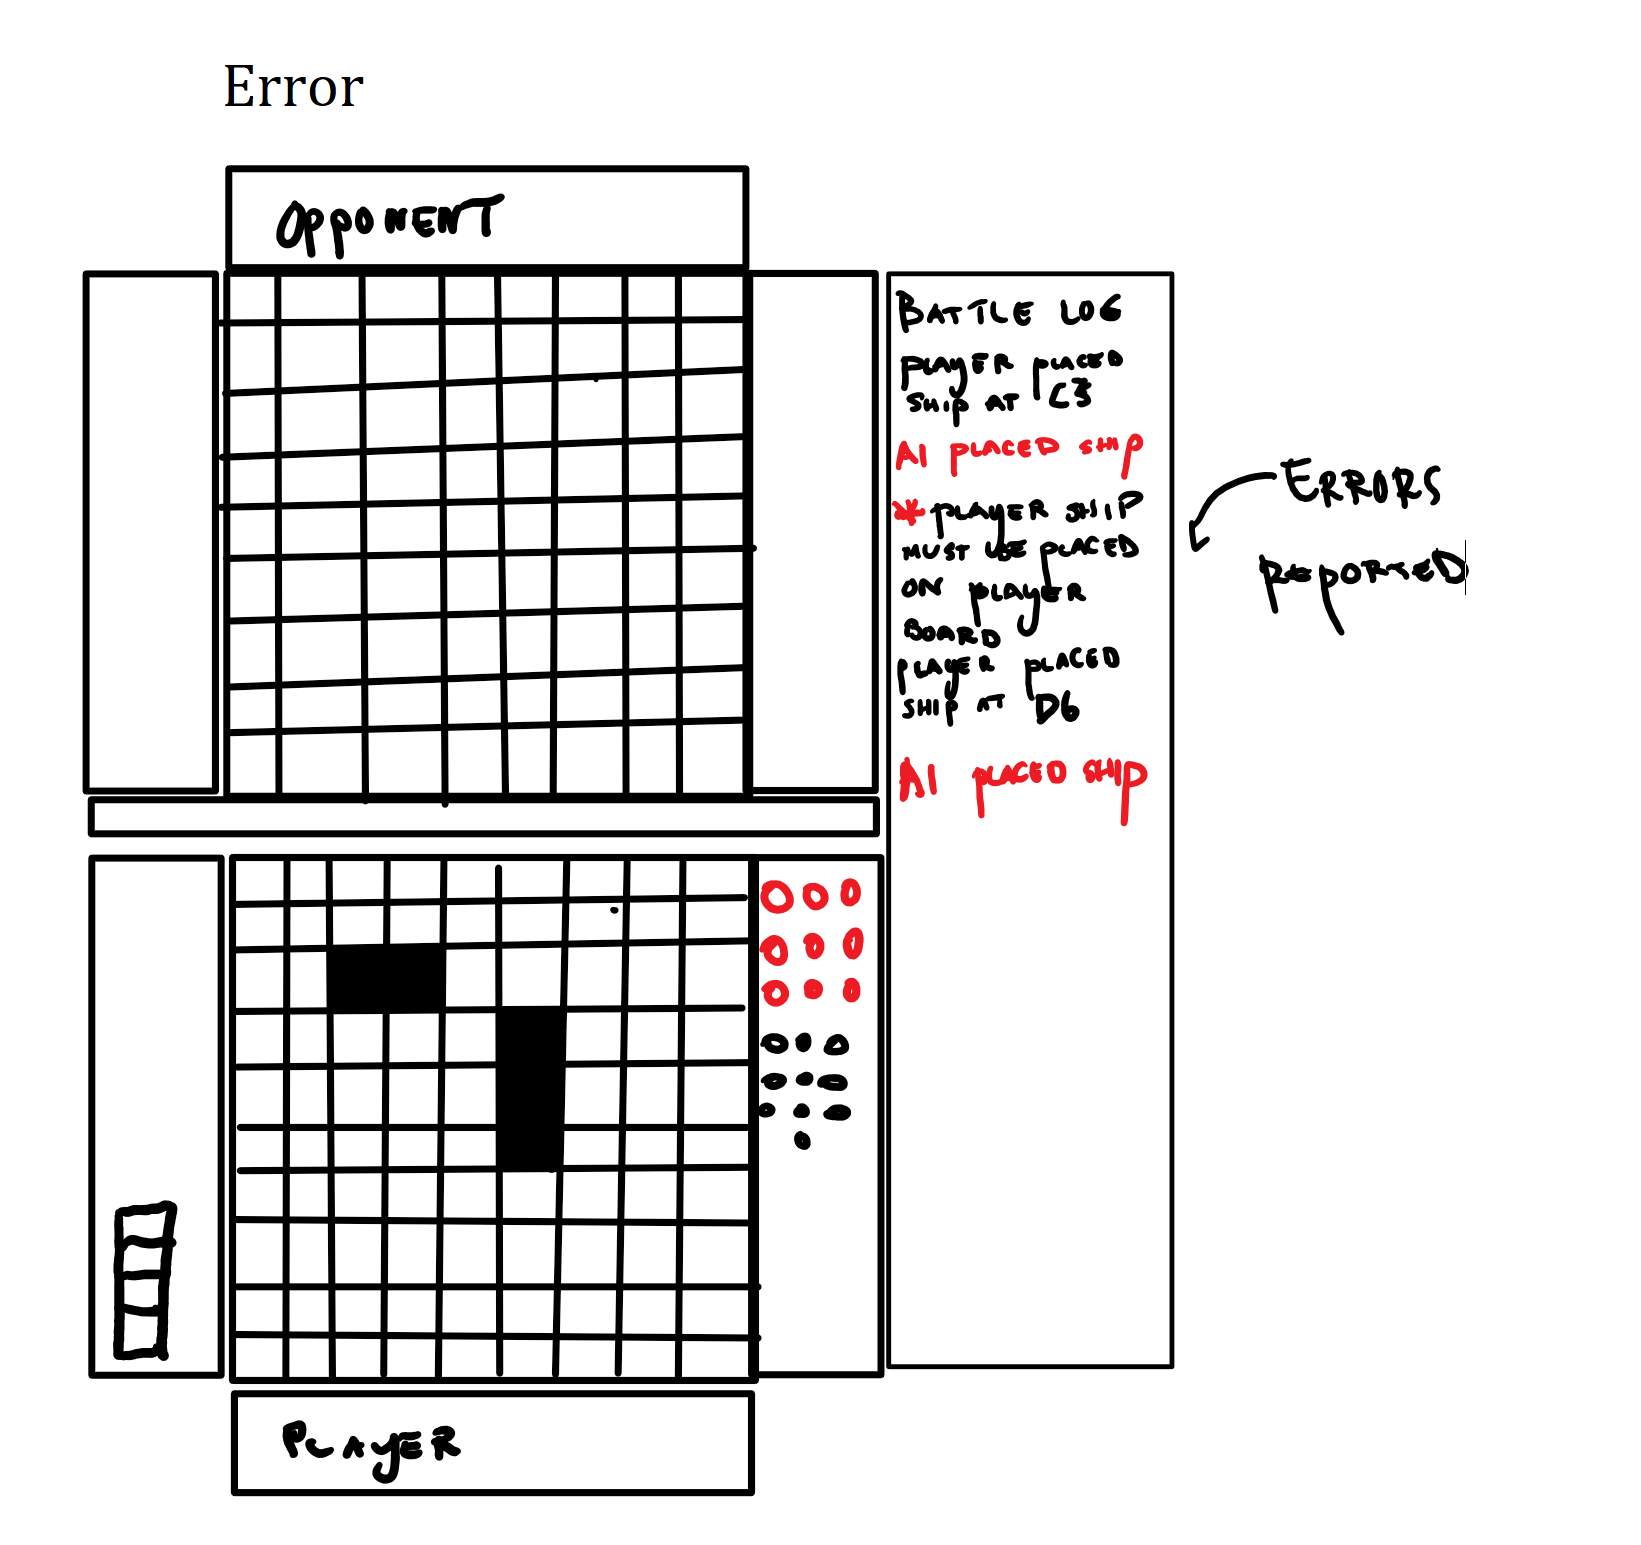 Error
OPPONENT
BATTLE LOG
PLAYER PLACED
SHIP AT C3
AI PLACED SHIP
* PLAYER SHIP
MUST BE PLACED
ON PLAYER
BOARD
PLAYER PLACED
SHIP AT D6
AI PLACED SHIP
ERRORS
REPORTED
PLAYER